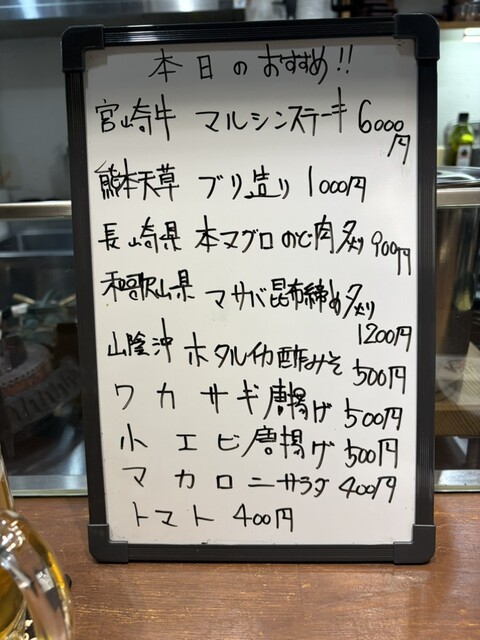 本日のおすすめ!!
宮崎牛 マルシンステーキ 6000円
熊本天草 ブリ造り 1000円
長崎県 本マグロのど肉炙り 900円
和歌山県 マサバ昆布締め炙り
1200円
山陰沖 ホタルイカ酢みそ 500円
ワカサギ唐揚げ 500円
小エビ唐揚げ 500円
マカロニサラダ 400円
トマト 400円